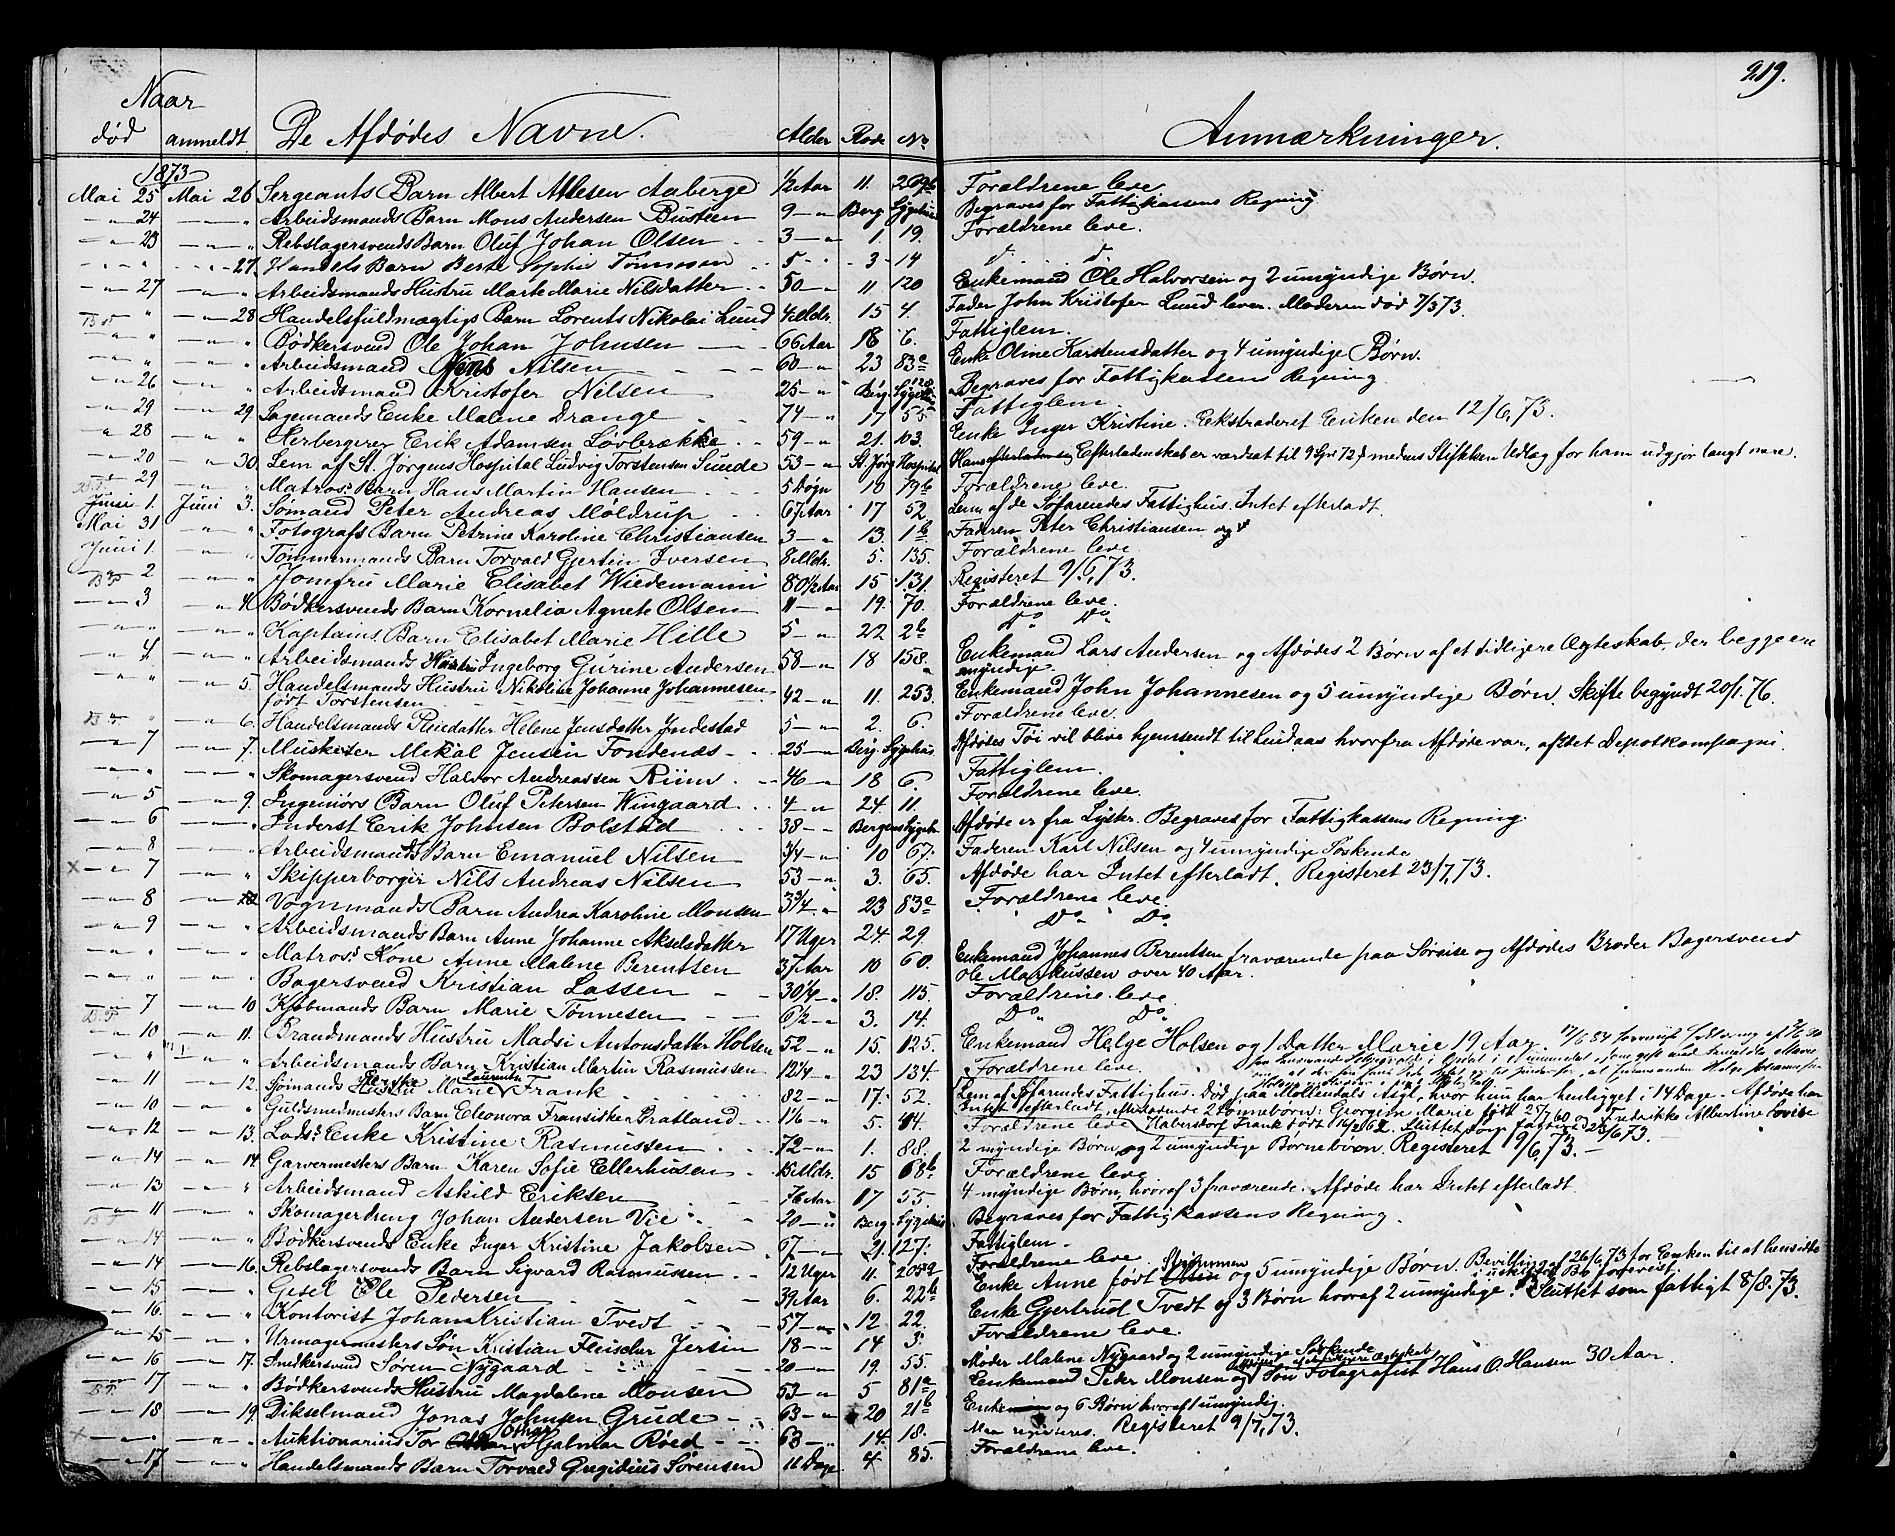 219.
Naar
død anmeldt. De Afdødes Navne. Alder Rode No Anmærkninger.
1873
Mai 25 Mai 26 Sergeants Barn Albert Atlesen Aaberge 1/2 Aar 11. 269b Forældrene leve
24 Arbeidsmands Barn Mons Andersen Busteen 9 Berg. Sygehus Begraves for Fattigkassens Regning
23 Rebslagersvends Barn Oluf Johan Olsen 3 1. 19. Forældrene leve.
27. Handels Barn Berte Sophie Tønnesen 5 3 14 d. d.
27 Arbeidsmands Hustru Marte Marie Nilsdatter 50 11 120 Enkemand Ole Halvorsen og 2 umyndige Børn.
28 Handelsfuldmægtigs Barn Lorents Nikolai Lund 4 Mdr. 15 4. Fader John Kristofer Lund lever. Moderen død 7/3 73.
Bødkersvend Ole Johan Johnsen 66 Aar 18 6. Fattiglem.
Arbeidsmand Jens Nilsen 60 23 83e Enke Oline Karstensdatter og 4 umyndige Børn.
26 Arbeidsmand Kristofer Nilsen 25 Berg. Sygehus Begraves for Fattigkassens Regning
29 29. Sagemands Enke Malene Drange 74 17 55 Fattiglem.
28 Herbergerer Erik Adamsen Løvbrække 59 21. 103. Enke Inger Kristine. Ekstraderet Enken den 12/6, 73.
20 30. Lem af St. Jørgens Hospital Ludvig Torstensen Sunde 53 St. Jørg. Hospital Hans Efterladenskab er værdsat til 9 Spr 72 s medens Stiftelsen Udlæg for ham udgjør langt mere.
29 Matros. Barn Hans Martin Hansen 5 Døgn 18 79b Forældrene leve.
Juni 1. Juni 3. Sømand Peter Andreas Moldrup 67 Aar 17 52 Lem af de Søfarendes Fattighus. Intet efterladt.
Mai 31 Fotografs Barn Petrine Karoline Christiansen 3 13. 1b Faderen Peter Christiansen og
Juni 1. Tømmermands Barn Torvald Gjertin Iversen 8 Mdr. 5. 135. Forældrene leve.
2 Jomfru Marie Elisabet Wiedemann 80 1/2 Aar 15 131. Registeret 9/6, 73.
3 4. Bødkersvends Barn Kornelia Agnete Olsen 11 19. 70. Forældrene leve.
Kaptains Barn Elisabet Marie Hille 5 22 2b Do Do
4 Arbeidsmands Hustru Ingeborg Gurine Andersen 58 18 158. Enkemand Lars Andersen og Afdødes 2 Børn af et tidligere Ægteskab, der begge ere
myndige.
5. Handelsmands Hustru Nikoline Johanne Johannesen 42 11. 253. Enkemand John Johannesen og 5 umyndige Børn. Skifte begyndt 20/1. 76.
født Torstensen
6. Handelsmands Pleiedatter Helene Jensdatter Indestad 5 2. 6. Forældrene leve.
7 7. Musketer Mikal Jensen Tondenæs 25 Berg. Sygehus Afdødes Tøi vil blive hjemsendt til hvorfra Afdøde var, af det Depotkompagni.
Skomagersvend Halvor Andreassen Riim 46 18 6. Fattiglem.
5 9. Ingeniørs Barn Oluf Petersen Wingaard 4 24 11. Forældrene leve.
6 Inderst Erik Johnsen Bolstad 38 Bergens Sygeh. Afdøde er fra Lyster. Begraves for Fattigkassens Regning.
8 Arbeidsmands Barn Emanuel Nilsen 3/4 10 67. Faderen Karl Nilsen og 4 umyndige Søskende
x 7 Skipperborger Nils Andreas Nilsen 53 3. 65. Afdøde har Intet efterladt. Registeret 23/7, 73.
8 10. Vognmands Barn Andrea Karoline Monsen 3 3/4 23 83e Forældrene leve.
9 Arbeidsmands Barn Anne Johanne Akselsdatter 17 Uger 24. 29. Do Do
Matros. Kone Anne Malene Berentsen 37 Aar 10 60. Enkemand Johannes Berentsen fraværende paa Sørejse og Afdødes Broder Bagersvend
Ole Markussen over 40 Aar.
Bagersvend Kristian Lassen 30 1/4 18. 115. Forældrene leve
7 10 Kjøbmands Barn Marie Tønnesen 6 1/2 3. 14. Do Do
10 11. Brandmands Hustru Madsi Antonsdatter Holsen 52 15. 125. Enkemand Helge Holsen og 1 Datter Marie 19 Aar.
Arbeidsmands Barn Kristian Martin Rasmussen 12 1/4 23 134. Forældrene leve.
11 12. Sømands Hustru Marie Frank 82 17. 52. Lem af Søfarendes Fattighus. Død paa Møllendals Asyl, hvor hun har henligget i 14 Dage. Afdøde har
Intet efterladt, efterlevende 2 Sønnebørn: Georgine Marie født 25/7 60 og Fredrikke Albertine Lovise
10 Guldsmedmesters Barn Eleonora Fransiska Bratland 1 1/6 5. 14. Forældrene leve Habersdorf Frank født 16/2 62. Sluttet som fattigt 28/6 73.
12 13. Lods. Enke Kristine Rasmussen 72 1. 88. 2 myndige Børn og 2 umyndige Børnebørn. Registeret 19/6, 73.
14 14 Garvermesters Barn Karen Sofie Ellerhusen 15 Mdr. 15 68b Forældrene leve
13 Arbeidsmand Askild Eriksen 76 Aar 17 55 4 myndige Børn, hvoraf 3 fraværende. Afdøde har Intet efterladt.
11 Skomagerdreng Johan Andersen Vie 20 Berg. Sygehus Begraves for Fattigkassens Regning.
14 Bødkersvends Enke Inger Kristine Jakobsen 67 21. 127. Fattiglem.
14 16. Rebslagersvends Barn Sigvard Rasmussen 12 Uger 11. 205 Forældrene leve
15 Gesel Ole Pedersen 39 Aar 6. 22b Enke Anne født og 5 umyndige Børn. Bevilling af 26/6 73 for Enken til at hensidde
i uskiftet Bo forevist.
16. Kontorist Johan Kristian Tvedt 57 12 22. Enke Gjertrud Tvedt og 3 Børn hvoraf 2 umyndige. Sluttet som fattigt 8/8. 73.
15 Urmagermesters Søn Kristian Fleischer Jersin 18 14 3. Forældrene leve.
16 17. Snedkersvend Søren Nygaard 20 19. 55. Moder Malene Nygaard og 2 umyndige Søskende
17 Bødkersvends Hustru Magdalene Monsen 53 5 81a Enkemand Peter Monsen og Søn Fotografist Hans O Hansen 30 Aar.
18 19. Dikselmand Jonas Johnsen Grude 63 20 21b Enke og 6 Børn hvoraf 1 umyndig.
Auktionarius Tor Othar Hjalmar Røed 63 14. 18. Registeret 9/7, 73.
17 Handelsmands Barn Torvald Gregidius Sørensen 11 Dage 4 85. Forældrene leve.